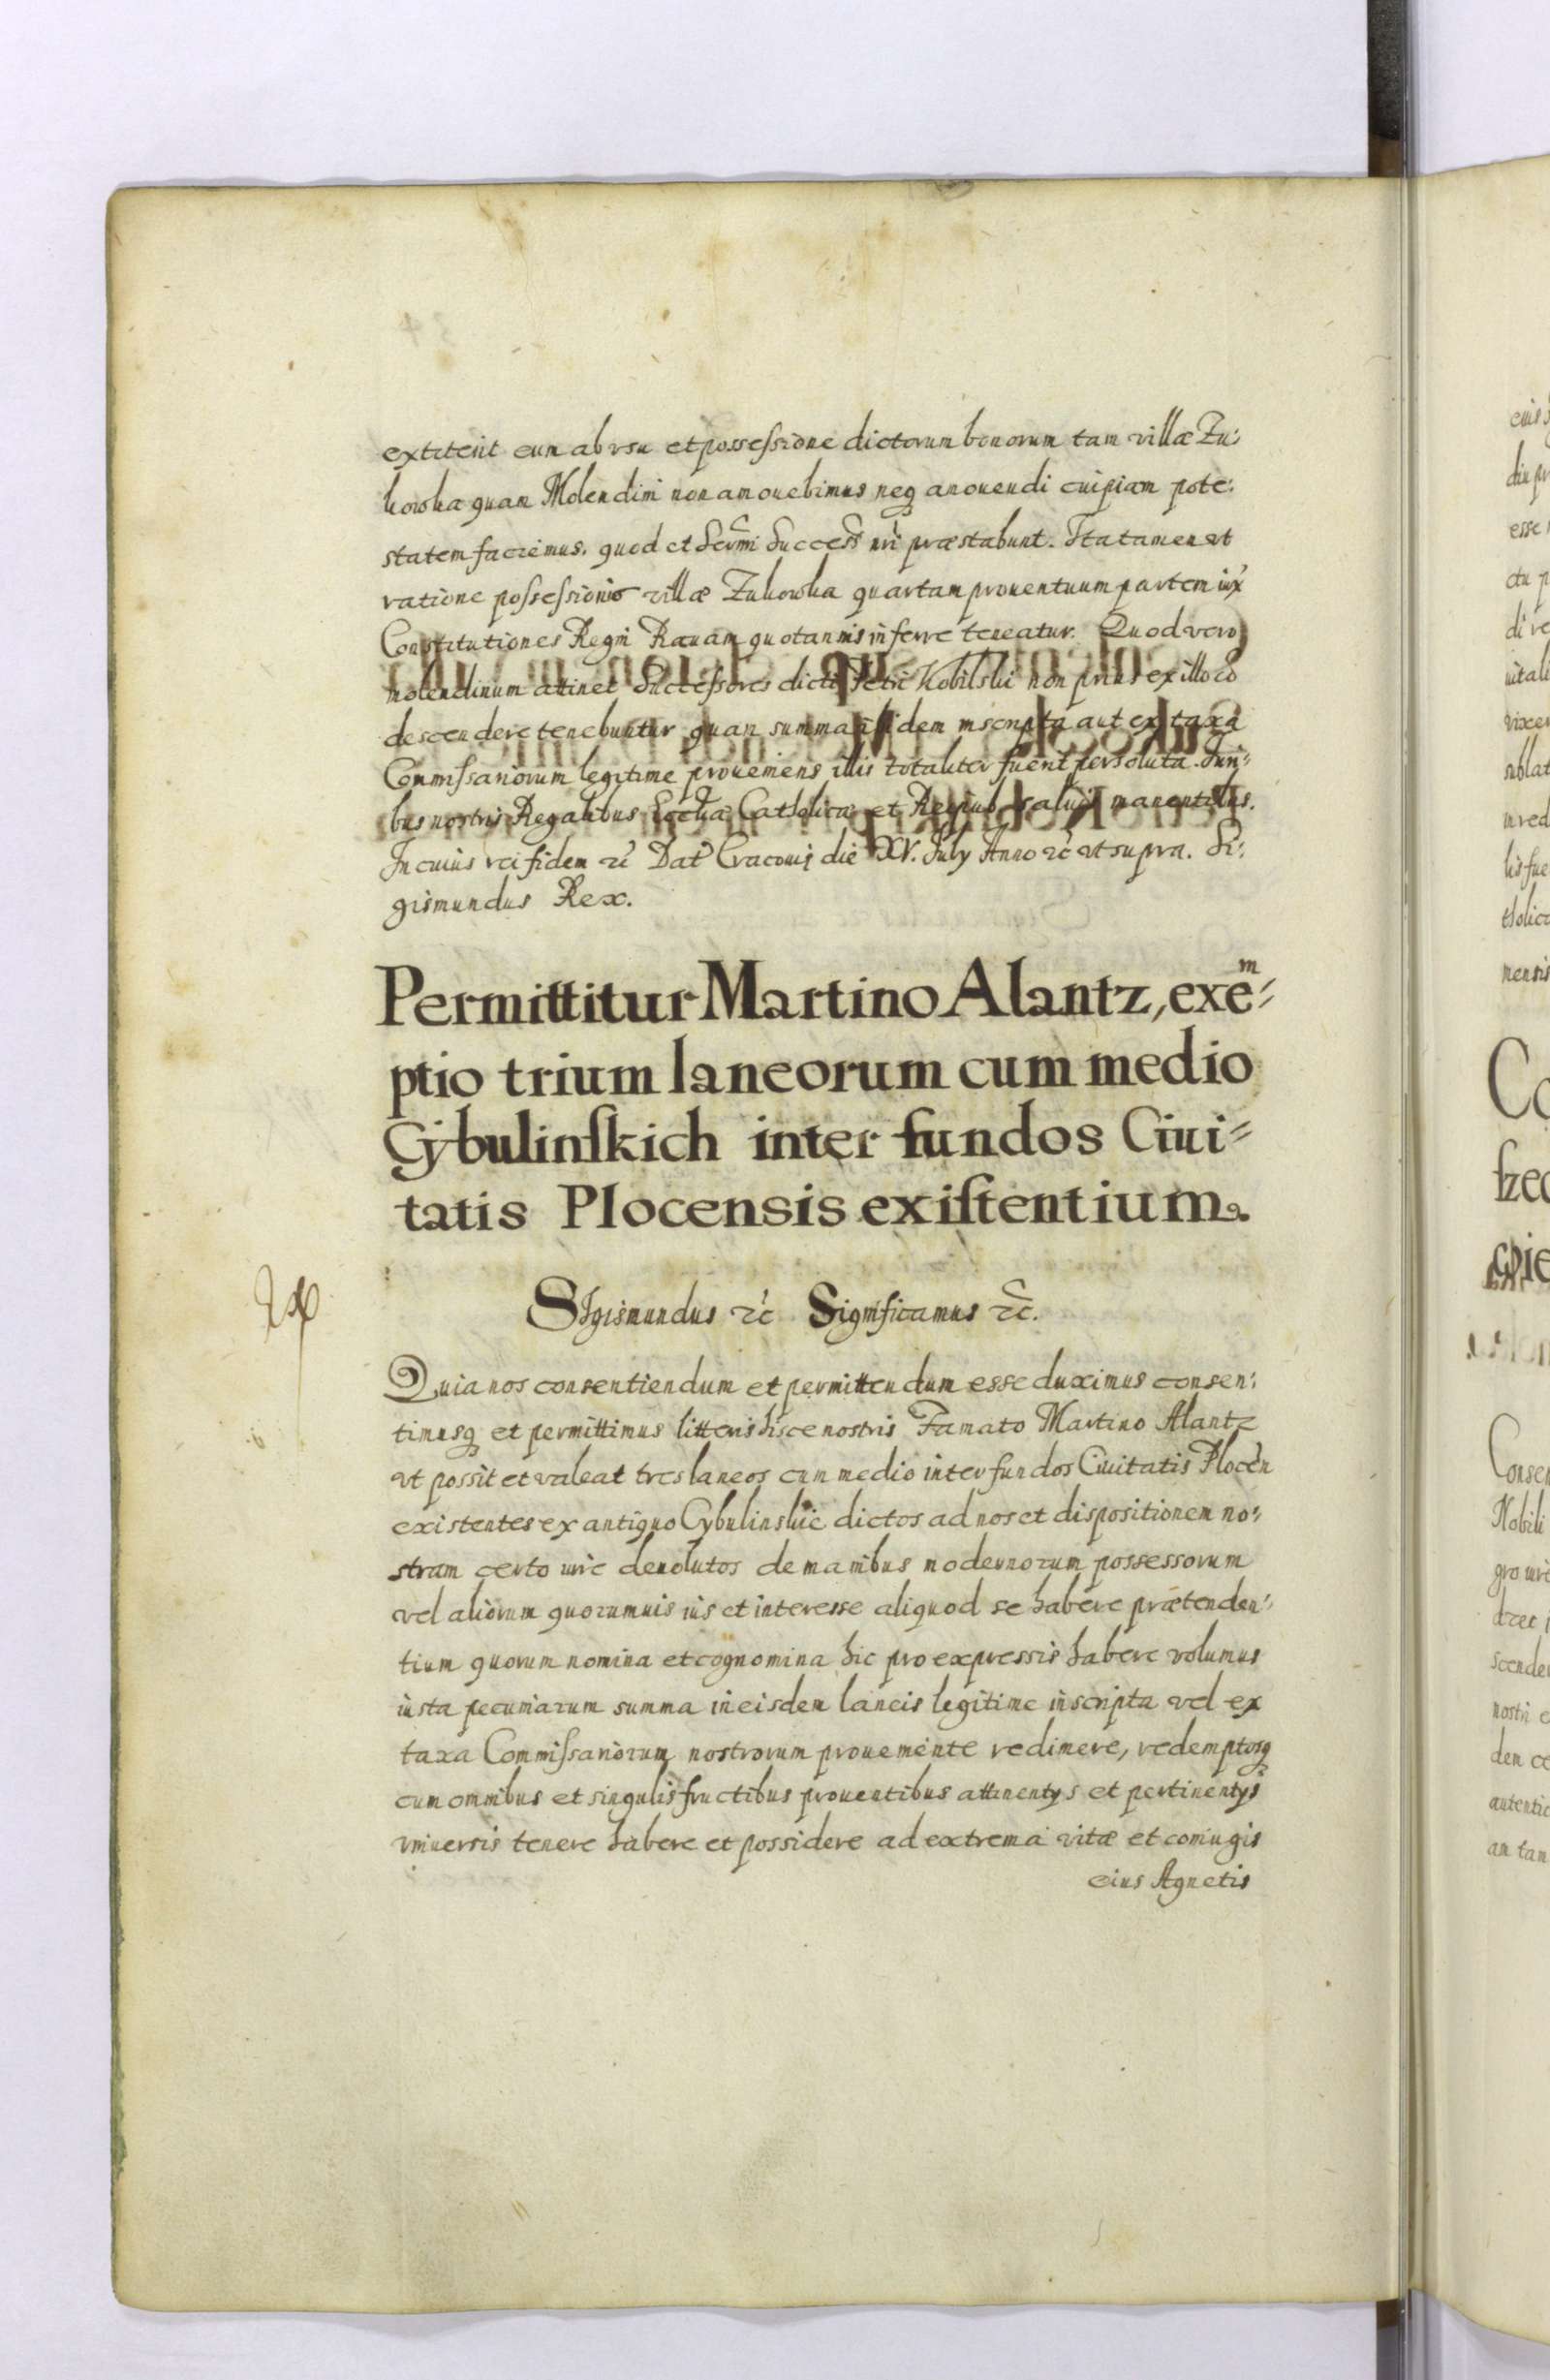 extiterit eum ab vsu et possessione dictorum bonorum tam villæ Zu:
kowka quam Molendini non amouebimus neq amouendi cuipiam pote:
statem faciemus. quod et Sermi Success nri præstabunt. Ita tamen vt
ratione possessionis villæ Zukowka quartam prouentuum partem iux
Constitutiones Regni Rauam quotannis inferre teneatur. Quod vero
molendinum attinet Successores dicti Petri Kobilski non prius ex illo co
descendere tenebuntur quam summa ibidem inscripta aut ex taxa
Commissariorum legitime proueniens illis totaliter fuerit persoluta. Iuri:
bus nostris Regalibus Ecclæ Catholicæ et Reipub saluis manentibus.
In cuius rei fidem &c Dat Cracouiæ die XV. July Anno &c vt supra. Si:
gismundus Rex.
Permittitur Martino Alantz, exe᷃m:
ptio trium laneorum cum medio
Cÿbulinſkich inter fundos Ciui=
tatis Plocensis exiſtentium.
SIgismundus &c Significamus &c.
Quia nos consentiendum et permittendum esse duximus consen:
timusq et permittimus litteris hisce nostris Famato Martino Alantz
vt possit et valeat tres laneos cum medio inter fundos Ciuitatis Plocen
existentes ex antiquo Cybulinskie dictos ad nos et dispositionem no:
stram certo iure deuolutos de manibus modernorum possessorum
vel aliorum quorumuis ius et interesse aliquod se habere prætenden:
tium quorum nomina et cognomina hic pro expressis habere volumus
iusta pecuniarum summa in eisdem laneis legitime inscripta vel ex
taxa Commissariorum nostrorum proueniente redimere, redemptosq
cum omnibus et singulis fructibus prouentibus attinentys et pertinentys
vniuersis tenere habere et possidere ad extrema vitæ et coniugis
eius Agnetis